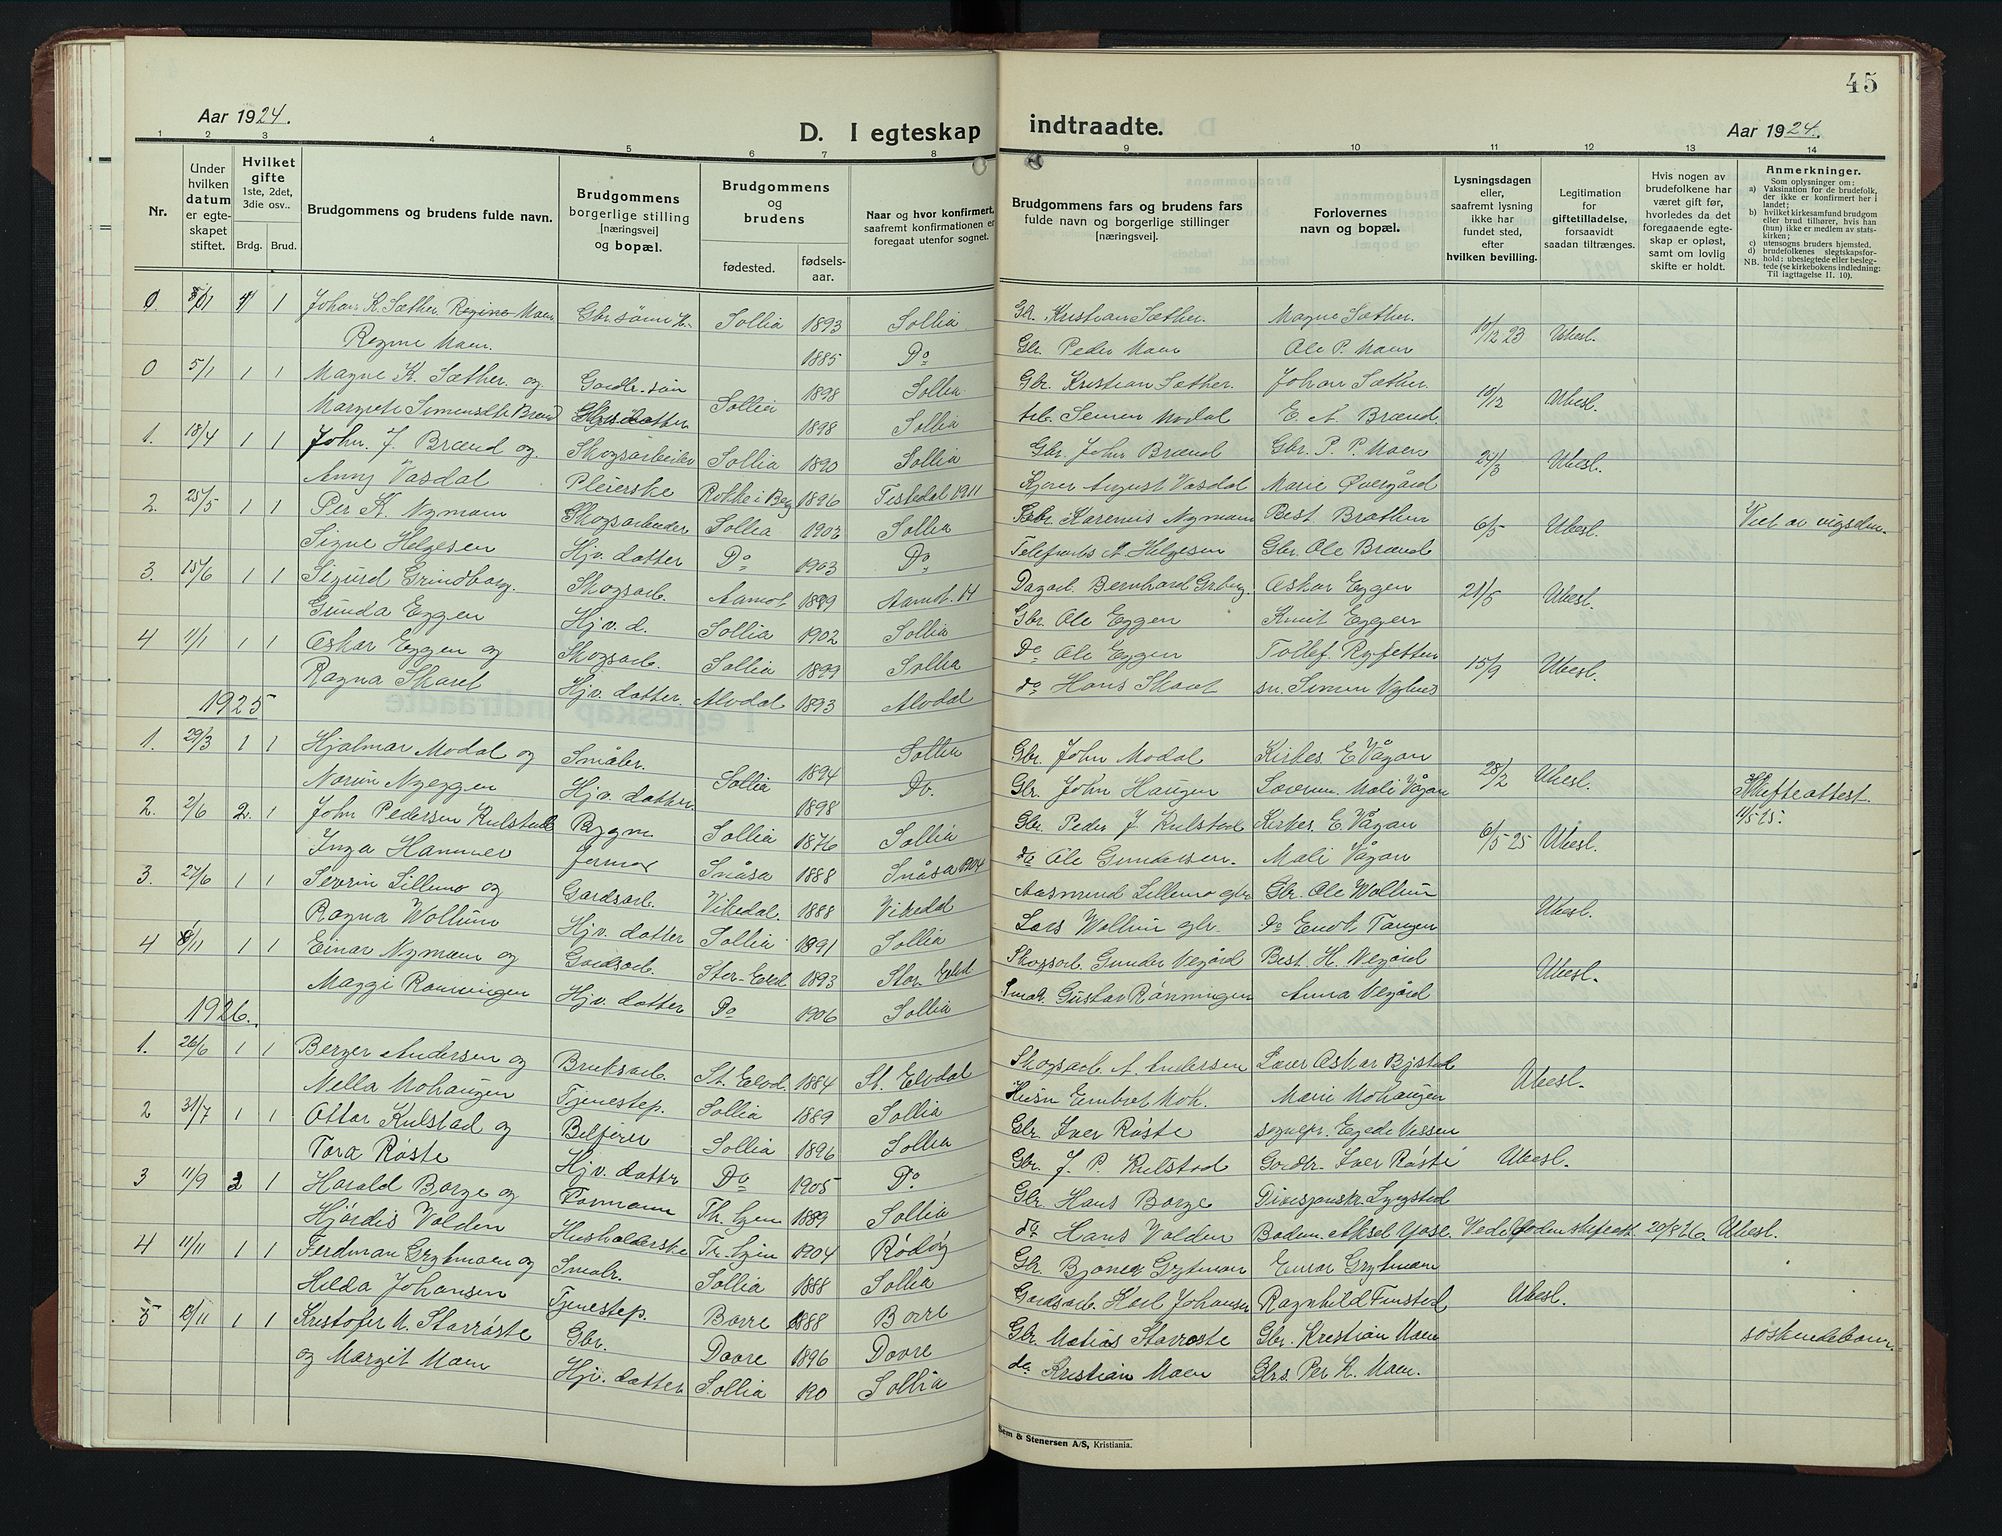 45
Aar 1924.
D. I egteskap indtraadte.
Aar 1924.
1 2 3 4 5 6 7 8 9 10 11 12 13 14
Nr.
Under hvilken datum er egteskapet stiftet.
Hvilket gifte 1ste, 2det, 3die osv..
Brdg. Brud.
Brudgommens og brudens fulde navn.
Brudgommens borgerlige stilling [næringsvei] og bopæl.
Brudgommens og brudens
fødested. fødsels-aar.
Naar og hvor konfirmert, saafremt konfirmationen er foregaat utenfor sognet.
Brudgommens fars og brudens fars fulde navn og borgerlige stillinger [næringsvei].
Forlovernes navn og bopæl.
Lysningsdagen eller, saafremt lysning ikke har fundet sted, efter hvilken bevilling.
Legitimation for giftetilladelse, forsaavidt saadan tiltrænges.
Hvis nogen av brudefolkene har været gift før, hvorledes da det foregaaende egteskap er opløst, samt om lovlig skifte er holdt.
Anmerkninger.
Som oplysninger om:
a) Vaksination for de brudefolk, der ikke er konfirmert her i landet;
b) hvilket kirkesamfund brudgom eller brud tilhører, hvis han (hun) ikke er medlem av statskirken;
c) utensogns bruders hjemsted.
d) brudefolkenes slegtskapsforhold: ubeslegtede eller beslegtede (se kirkebokens indledning: Til iagttagelse II. 10).
NB.
0. 1 Johan K. Sæther. Regine Moen Gbr. sønn Sollia 1893 Sollia Gbr. Kristian Sæther. Magne Sæther. 19/12 23 Ubesl.
Regine Moen. 1885 Do Gbr. Peder Moen Ole P. Moen
0 5/1 1 1 Magne K. Sæther. og Gardbr. søn Sollia 1898 Sollia Gbr. Kristian Sæther. Johan Sæther. 19/12 Ubesl.
Margrete Simensdtr Brænd 1898 Sollia Modal E. A. Brænd.
1. 18/4 1 1 John. J. Brænd og Skogsarbeider Sollia 1890 Sollia Gbr. John Brænd Gbr. P. P. Moen 24/3 Ubesl.
Anny Vasdal Pleierske 1896 Tistedal 1911 August Vasdal Marie Øvergård
2. 25/5 1 1 Per K. Nymoen Skogsarbeider Sollia 1902 Sollia Nymoen Best. Brathen 6/5 Ubesl. Viet av vigselm.
Signe Helgesen Hjv. datter Do 1903 Do A. Helgesen Gbr. Ole Brænd
3. 15/6 1 1 Sigurd Grindborg. Skogsarb. Aamot 1889 Aamot. 14 Dagarb. Bernhard Grbrg. Oskar Eggen 21/5 Ubesl.
Gunda Eggen Hjv. d. Sollia 1902 Sollia Gbr. Ole Eggen Knut Eggen
4 11/1 1 1 Oskar Eggen og Skogsarb. Sollia 1899 Sollia Do Ole Eggen Tollef. Ryfetten 15/9 Ubesl.
Ragna Skaret Hjv. datter. Alvdal 1893 Alvdal do Hans Skaret Simen
1925
1. 29/3 1 1 Hjalmar Modal og Småbr. Sollia 1894 Sollia Gbr. John Modal Kirkes. E. Vågan 28/2 Ubesl.
Nyeggen Hjv. datter. 1898 Do. Gbr. John Haugen Mali Vågan
2. 2/6 2. 1 John Pedersen Kulstad Bygm. Sollia 1876 Sollia Gbr. Peder J. Kulstad Kirkes. E. Vågan 6/5 25 Ubesl. Skifteattest. 11/5 25.
Inga Hammer Snåsa 1888 Snåsa 1904 do Ole Gundersen. Mali Vågan
3. 27/6 1 1 Severin Lillemo og Gardsarb. Vikedal. 1888 Vikedal Aasmund Lillemo gbr Gbr. Ole Wollum Ubesl.
Ragna Wollum Hjv. datter Sollia 1891 Sollia Lars Wollum gbr. Do Tangen
4 8/11 1 1 Einar Nymoen og Gardsarb. Stor-Elvd 1893 Stor Elvd Skogsarb. Gunder Vegård Best. H. Vegård Ubesl.
Maggi Rønningen Hjv. datter Do 1906 Sollia Gustav Rønningen Anna Vegård
1926.
1. 26/6 1 1 Berger Andersen og Bruksarb. St. Elvd. 1884 St. Elvdal Skogsarb. A. Andersen Lærer Oskar Bjøstad Ubesl.
Nella Mohaugen Tjenestep. Sollia 1889 Sollia Embret Moh. Marie Mohaugen
2 31/7 1 1 Ottar Kulstad og Bileier Sollia 1896 Sollia Gbr. Iver Røste sognepr. Egede Nissen Ubesl.
Tora Røste Hjv. datter Do 1905 Do. Gbr. J. P. Kulstad Gardbr. Iver Røste
3 11/9 2 1 Harald Borge og Formann 1889 Sollia Gbr. Hans Borge
Hjørdis Volden Husholderske 1904 Rødøy do Hans Volden 20/8 26. Ubesl.
4 11/11 1 1 Ferdinan Grytmoen og Småbr. Sollia 1888 Sollia Gbr. Grytmoen Einar Grytmoen Ubesl.
Hilda Johansen Tjenestep. Borre 1888 Borre Gardsarb. Karl Johansen Ragnhild Finstad
5 1 1 Kristofer M. Storrøste Gbr. Dovre 1896 Dovre Gbr. Matias Storrøste Gbr. Kristian Moen søskendebarn.
og Margit Moen Hjv. datter Sollia 190 Sollia do. Kristian Moen Per K. Moen.
Sem & Stenersen A/S, Kristiania.